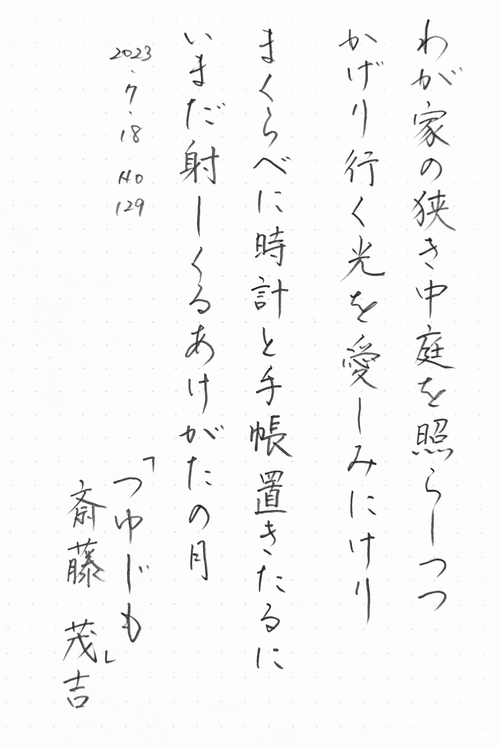 わが家の狭き中庭を照らしつつ
かげり行く光を愛しみにけり
まくらべに時計と手帳置きたるに
いまだ射しくるあけがたの月
2023.7.18 No 129
「つゆじも」
斎藤 茂吉